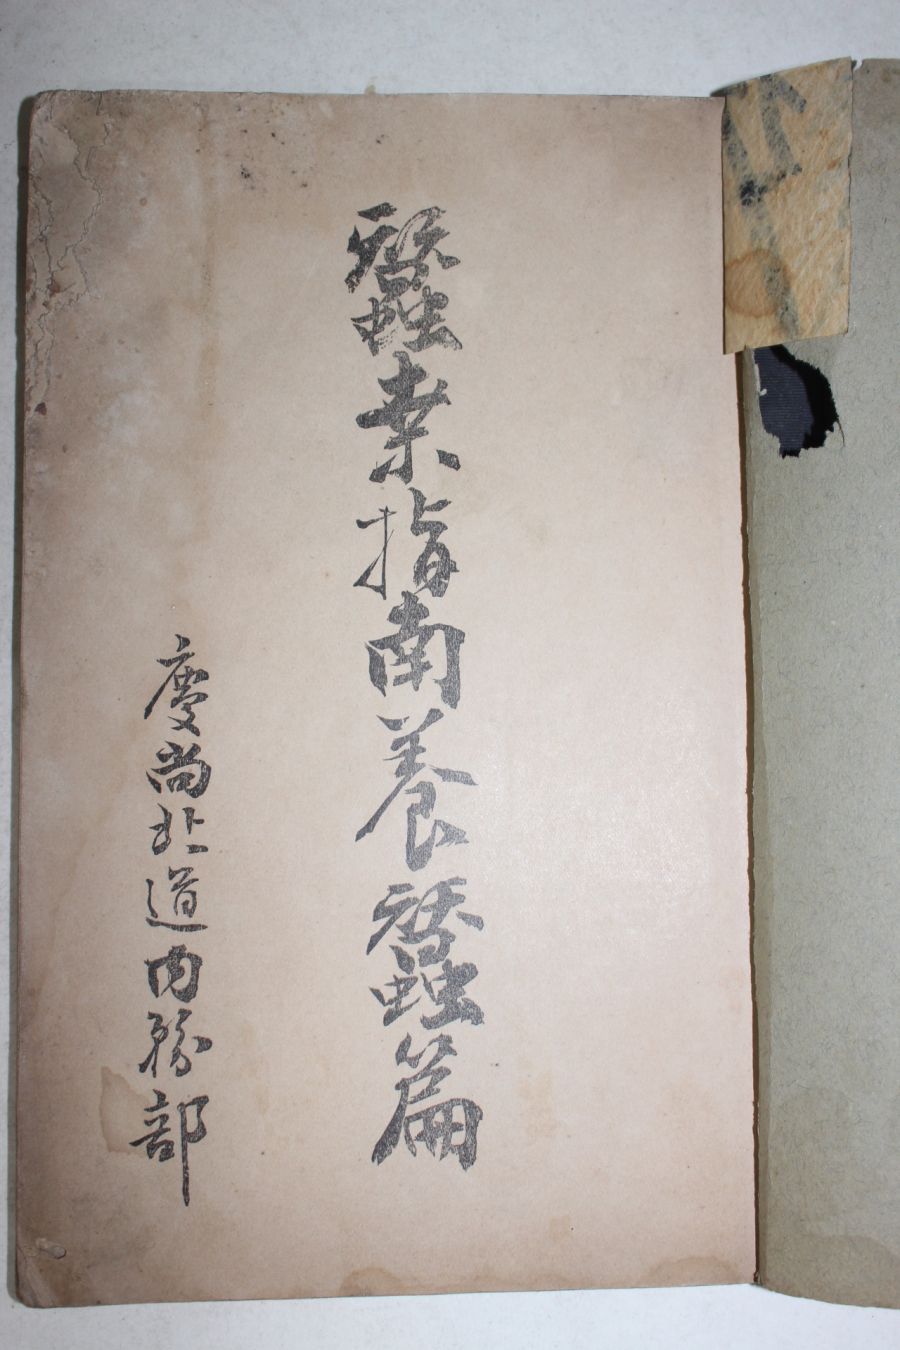 蠶業指南養蠶篇
慶尚北道內務部